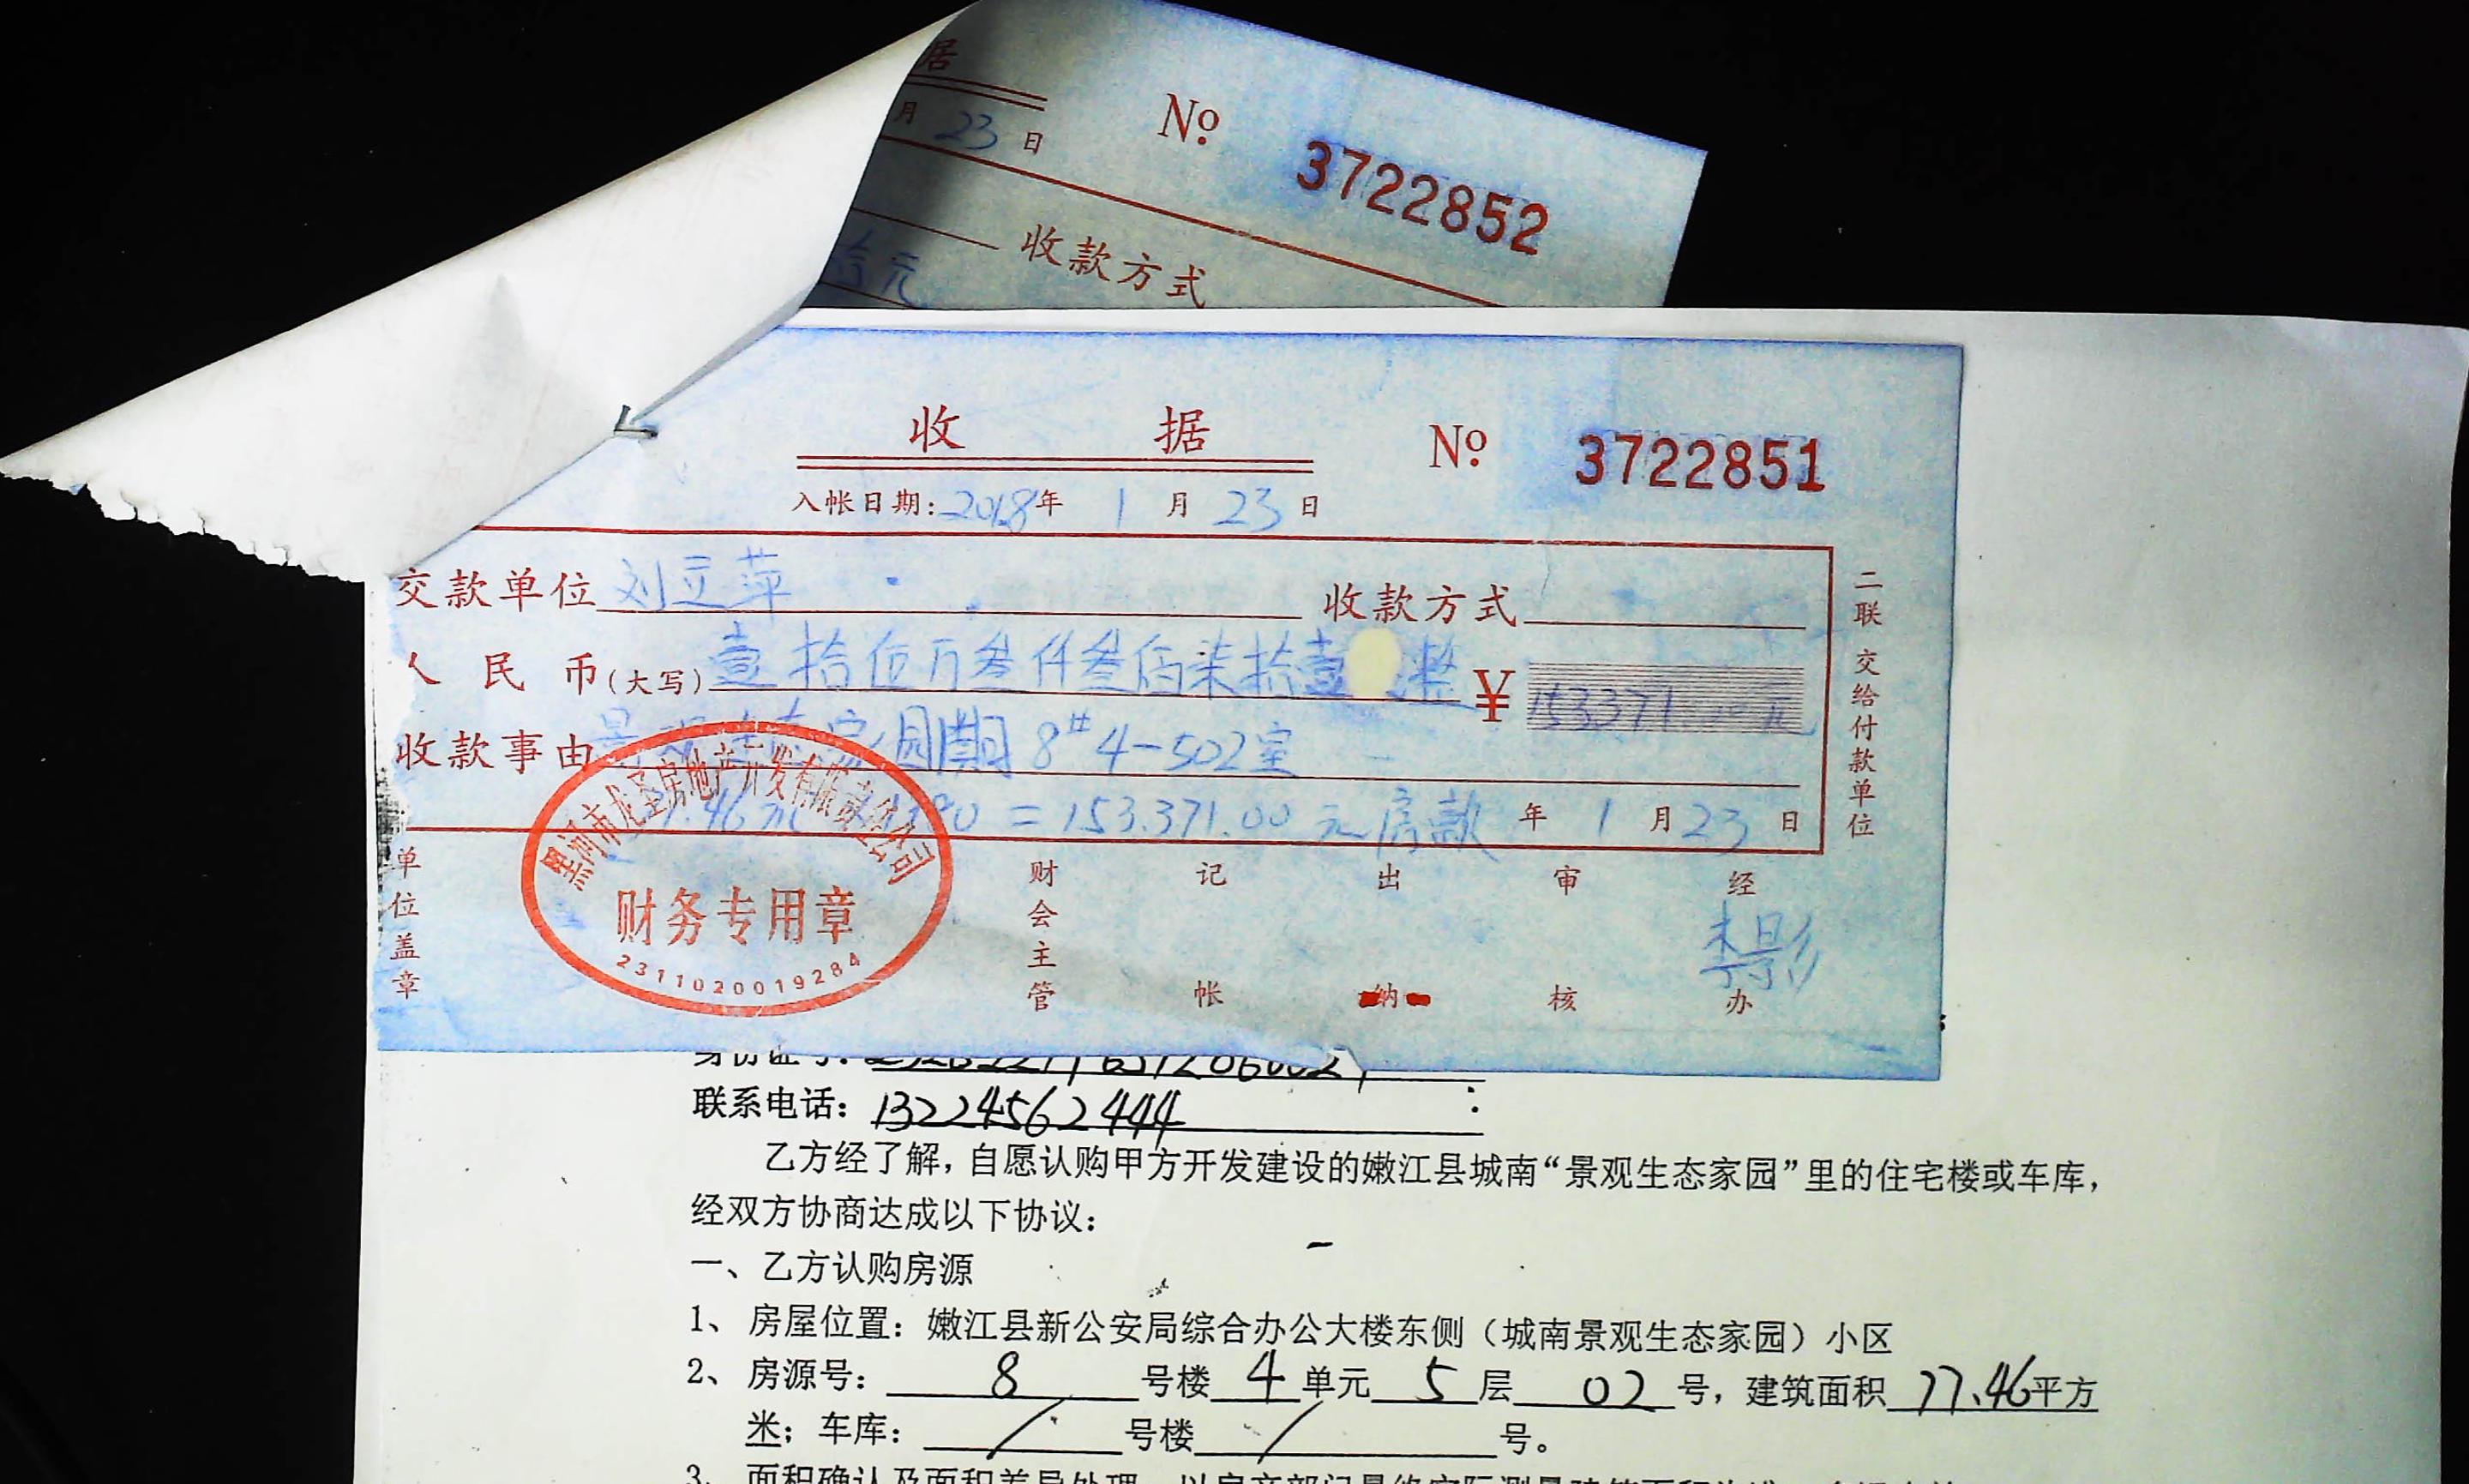 据
月 23 日
No 3722852
收款方式
拾元
收 据
No 3722851
入帐日期:2018年 1 月 23 日
交款单位 刘立萍 收款方式
人 民 币(大写) 壹拾伍万叁仟叁佰柒拾壹 整 ¥ 153371.00元
收款事由 景观生态家园 期 8# 4-502室
.46㎡ 80 = 153.371.00 元房款 年 1 月 23 日
二联 交给付款单位
单位盖章
黑河市龙圣房地产开发有限责任公司
财务专用章
2311020019284
财会主管 记帐 出纳 审核 经办
李影
身份证号:
联系电话: 13224562444
乙方经了解，自愿认购甲方开发建设的嫩江县城南“景观生态家园”里的住宅楼或车库，
经双方协商达成以下协议：
一、乙方认购房源
1、房屋位置：嫩江县新公安局综合办公大楼东侧（城南景观生态家园）小区
2、房源号： 8 号楼 4 单元 5 层 02 号，建筑面积 77.46平方
米；车库： / 号楼 / 号。
3、面积确认及面积差异处理